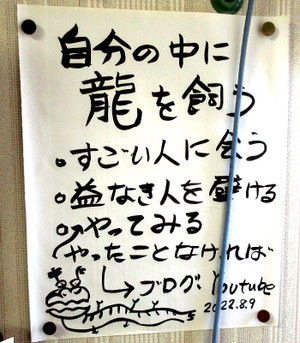 自分の中に
龍を飼う
。すごい人に会う
。益なき人を避ける
。やってみる
やったことなければ
↳ブログ、Youtube
2022.8.9